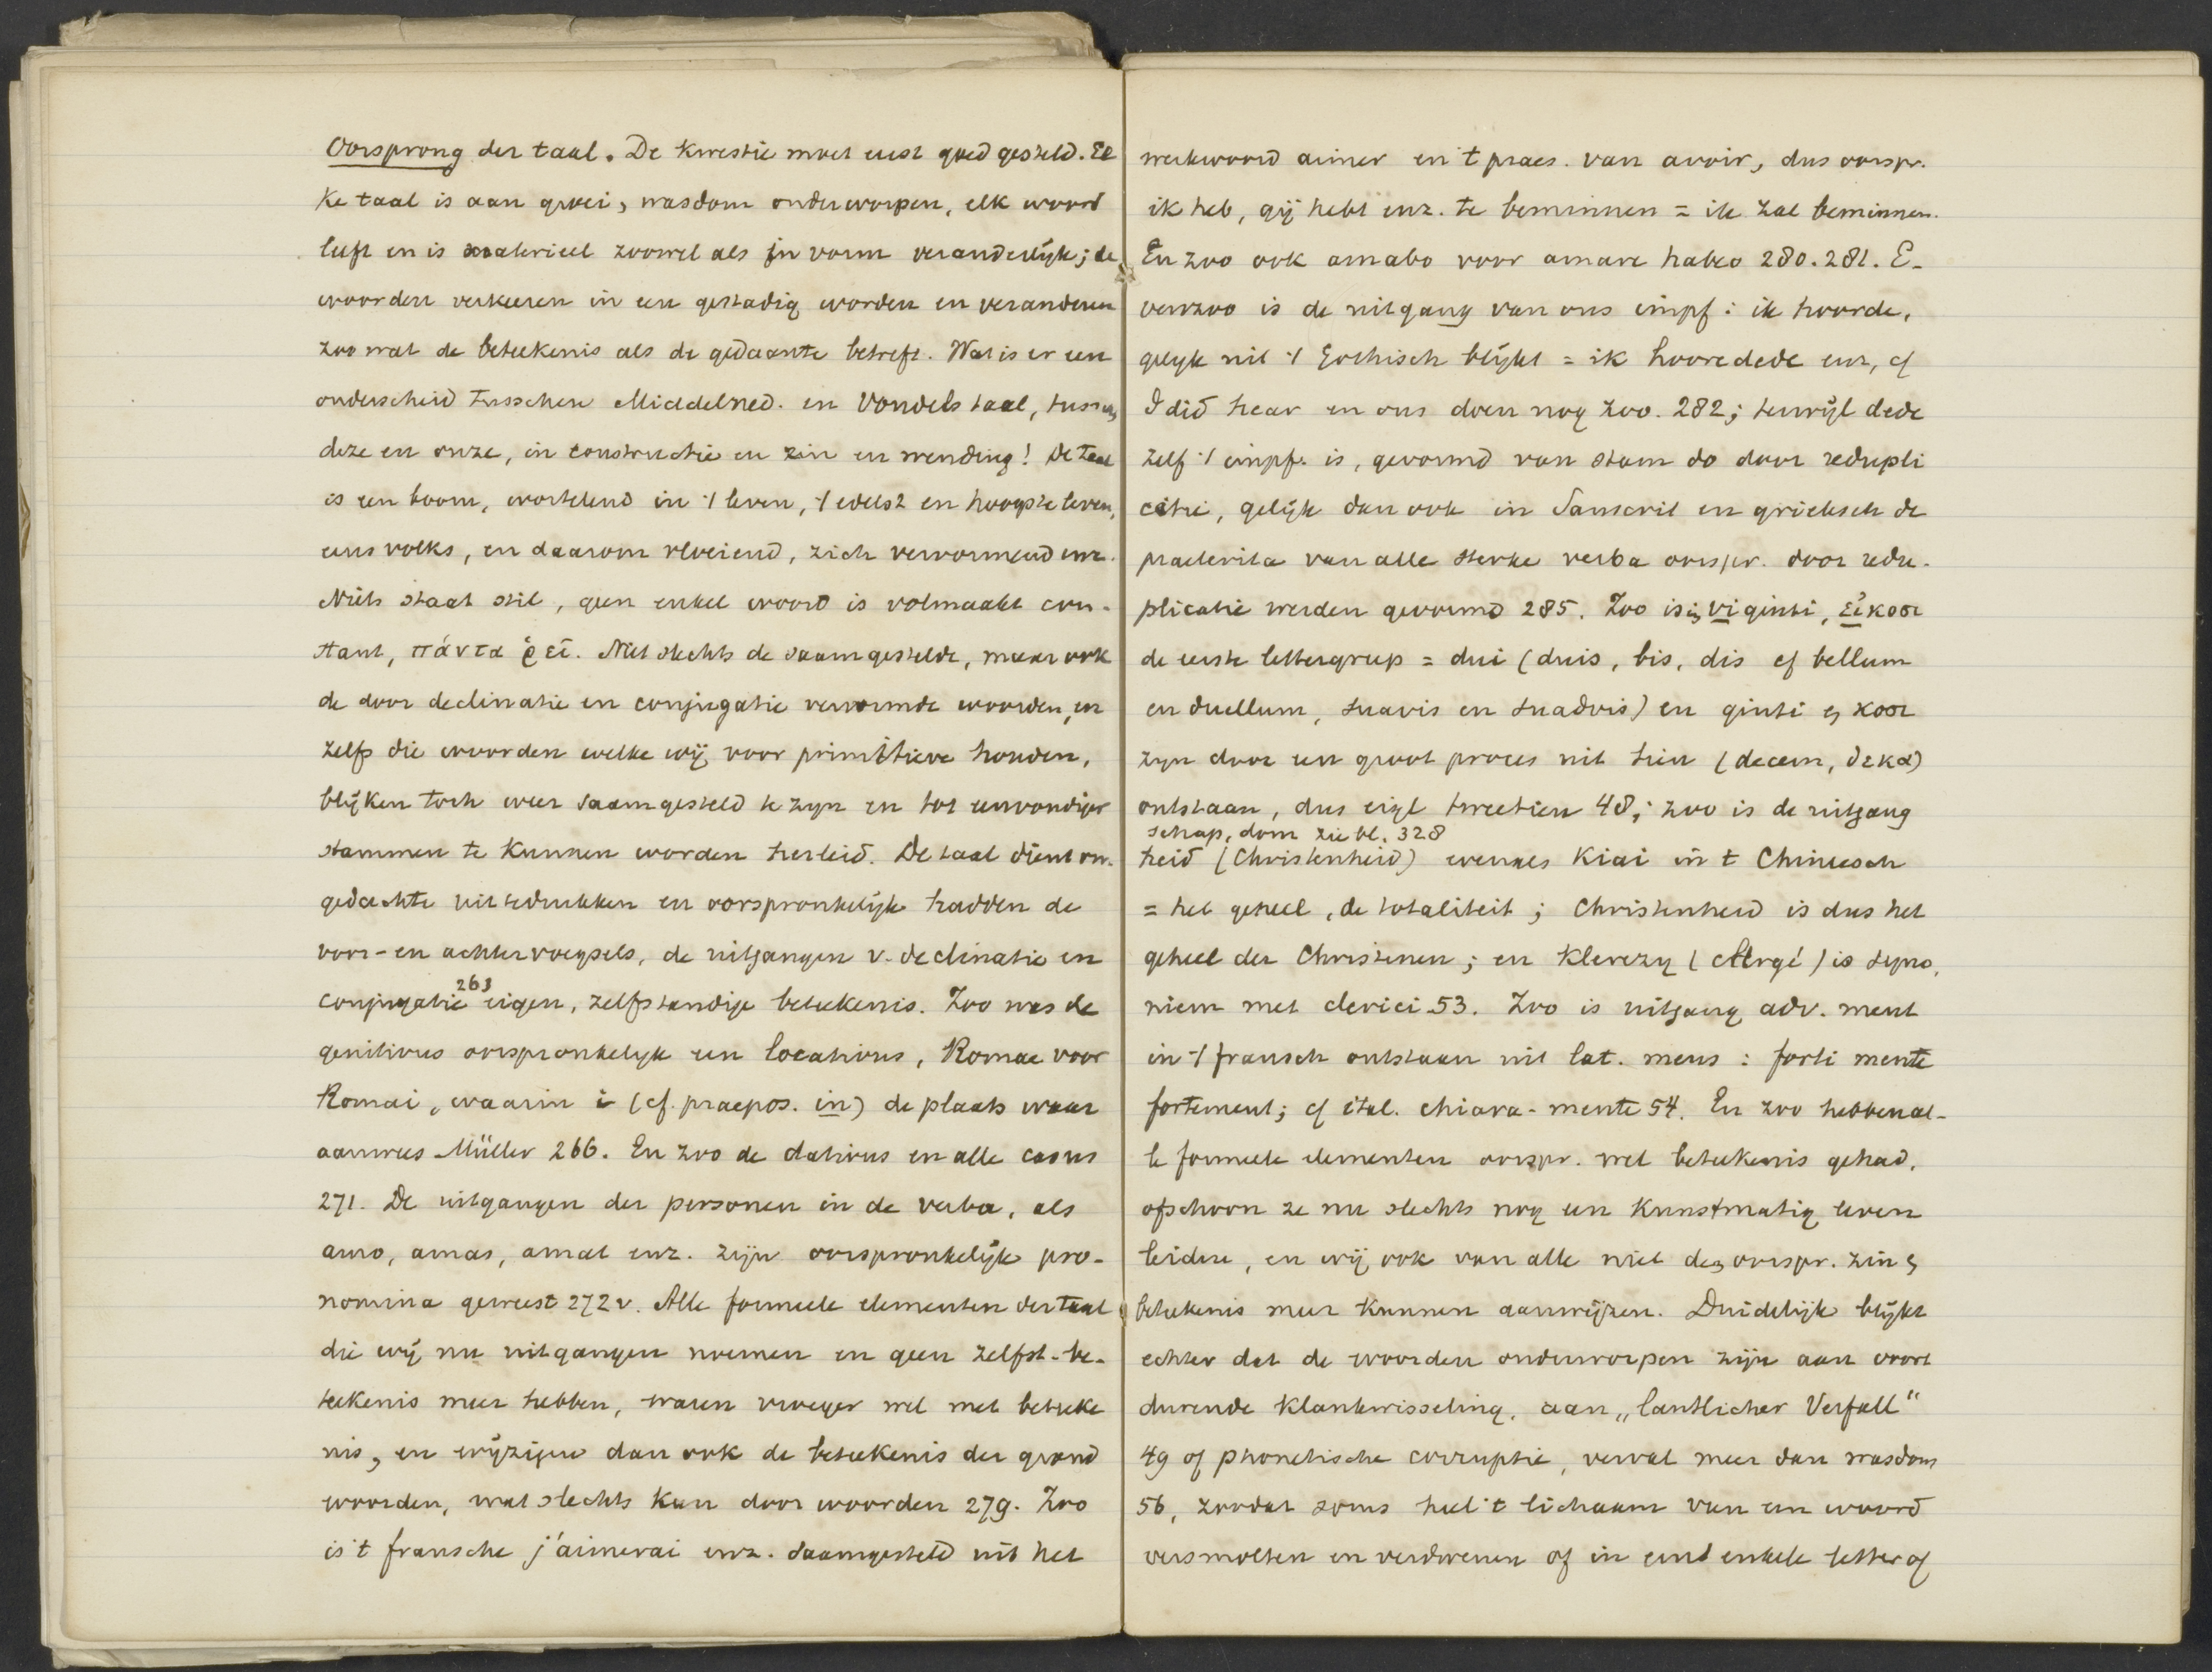 Oorsprong der taal. De kwestie moet eerst goed gesteld. El
ke taal is aan groei, wasdom onderworpen, elk woord
leeft en is materieel zoowel als in vorm veranderlijk; de
woorden verkeeren in een gestadig worden en veranderen
zoo wat de beteekenis als de gedaante betreft. Wat is er een
onderscheid tusschen Middelned. en Vondels taal, tusschen
deze en onze, in constructie en zin en wending! De taal
is een boom, wortelend in 't leven, 't edelst en hoogste leven,
eens volks, en daarom vloeiend, zich vervormend enz.
Niets staat stil, geen enkel woord is volmaakt con-
stant, πάντα ῥεῖ. Niet slechts de saamgestelde, maar ook
de door declinatie en conjugatie vervormde woorden, en
zelfs die woorden welke wij voor primitieve houden,
blijken toch weer saamgesteld te zijn en tot eenvoudiger
stammen te kunnen worden herleid. De taal dient om
gedachte uittedrukken en oorspronkelijk hadden de
voor- en achtervoegsels, de uitgangen v. declinatie en
conjugatie 263 eigen, zelfstandige beteekenis. Zoo was de
genitivus oorspronkelyk een locativus, Romae voor
Romai, waarin i (cf. praepos. in) de plaats waar
aanwees Müller 266. En zoo de dativus en alle casus
271. De uitgangen der personen in de verba, als
amo, amas, amat enz. zijn oorspronkelijk pro-
nomina geweest 272v. Alle formeele elementen der taal
die wij nu uitgangen noemen en geen zelfst. be-
teekenis meer hebben, waren vroeger wel met beteeke
nis, en wijzigen dan ook de beteekenis der grond
woorden, wat slechts kan door woorden 279. Zoo
is 't fransche j'aimerai enz. saamgesteld uit het
werkwoord aimer en 't praes. van avoir, dus oorspr.
ik heb, gij hebt enz. te beminnen = ik zal beminnen.
En zoo ook amabo voor amare habeo 280. 281. E-
venzoo is de uitgang van ons impf: ik hoorde,
gelyk uit 't Gothisch blijkt = ik hooredede enz, cf
I did hear en ons doen nog zoo. 282; terwijl dede
zelf 't impf. is, gevormd van stam do door redupli
catie, gelijk dan ook in Sanscrit en grieksch de
praeterita van alle sterke verba oorspr. door redu-
plicatie werden gevormd 285. Zoo is in viginti, εἴκοσι
de eerste lettergreep = dui (duis, bis, dis cf bellum
en duellum, suavis en suadvis) en ginti en κοσι
zyn door een groot proces uit tien (decem, δεκα)
ontstaan, dus eigl tweetien 48; zoo is de uitgang
schap, dom zie bl. 328
heid (Christenheid) evenals Kiai in 't Chineesch
= het geheel, de totaliteit; Christenheid is dus het
geheel der Christenen; en Klerezy (clergé) is syno
niem met clerici 53. Zoo is uitgang adv. ment
in 't fransch ontstaan uit lat. mens: forti mente
fortement; cf ital. chiara-mente 54. En zoo hebben al-
le formeele elementen oorspr. wel beteekenis gehad,
ofschoon ze nu slechts nog een kunstmatig leven
leiden, en wij ook van alle niet den oorspr. zin en
beteekenis meer kunnen aanwijzen. Duidelijk blijkt
echter dat de woorden onderworpen zijn aan voort
durende klankwisseling, aan „lautlicher Verfall“
49 of phonetische corruptie, verval meer dan wasdom
56, zoodat soms heel 't lichaam van een woord
versmolten en verdwenen of in eene enkele letter of